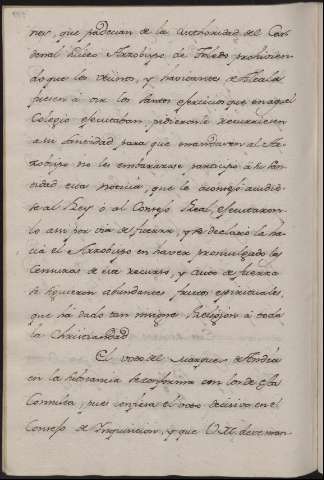 nes, que padecian de la Authoridad del Car
denal Siliceo Arzobispo de Toledo prohivien
do que los vecinos, y havitantes de Alcala
fuesen à oir los santos exercicios que en aquel
Colegio executaban pidieronle recurriesen
a su Santidad para que mandasen al Ar
zobispo no les embarazase participo à su San
tidad esta noticia, que le aconsejo acudie
se al Rey ò al Consejo Real, executaron
lo assi por via de fuerza, y se declaró la ha
cia el Arzobispo en haver promulgado las
Censuras de este recurso, y auto de fuerza
se siguieron abundantes frutos espirituales,
que ha dado tan insigne Religion à toda
la Christiandad
El voto del Marques de Andia
en la substancia se conforma con los de esta
Consulta, pues confiesa el voto decisivo en el
Consejo de Inquisicion, y que V.M. deve man